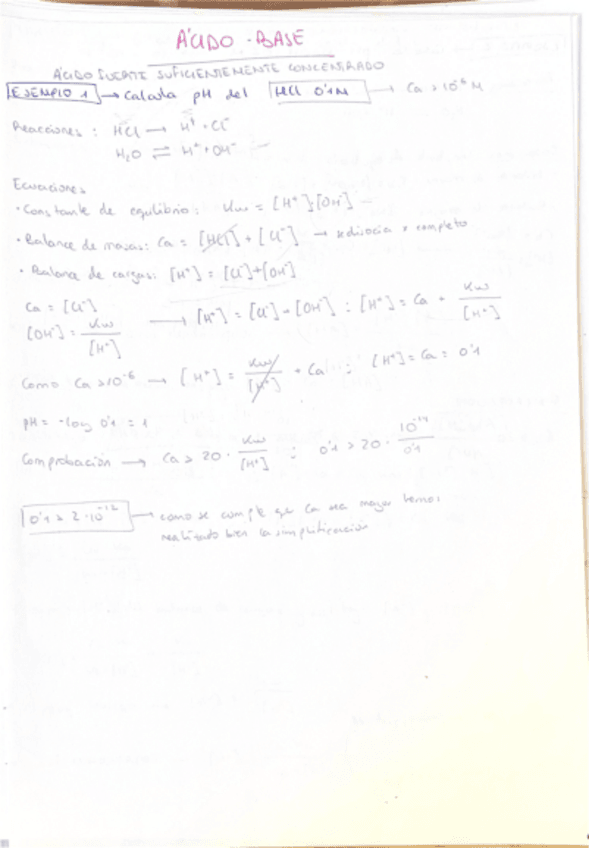 ÁCIDO - BASE
ÁCIDO FUERTE SUFICIENTEMENTE CONCENTRADO
EJEMPLO 1 → Calcula pH del HCl 0'1M → Ca > 10⁻⁶ M
Reacciones: HCl → H⁺ + Cl⁻
H₂O ⇌ H⁺ + OH⁻
Ecuaciones
• Constante de equilibrio: Kw = [H⁺][OH⁻]
• Balance de masas: Ca = [HCl] + [Cl⁻] → se disocia x completo
• Balance de cargas: [H⁺] = [Cl⁻] + [OH⁻]
Ca = [Cl⁻]
[OH⁻] = Kw / [H⁺] → [H⁺] = [Cl⁻] + [OH⁻] ; [H⁺] = Ca + Kw / [H⁺]
Como Ca > 10⁻⁶ → [H⁺] = Kw / [H⁺] + Ca ; [H⁺] = Ca = 0'1
pH = -log 0'1 = 1
Comprobación → Ca > 20 · Kw / [H⁺] ; 0'1 > 20 · 10⁻¹⁴ / 0'1
0'1 > 2·10⁻¹² → como se cumple que Ca sea mayor hemos
realizado bien la simplificación